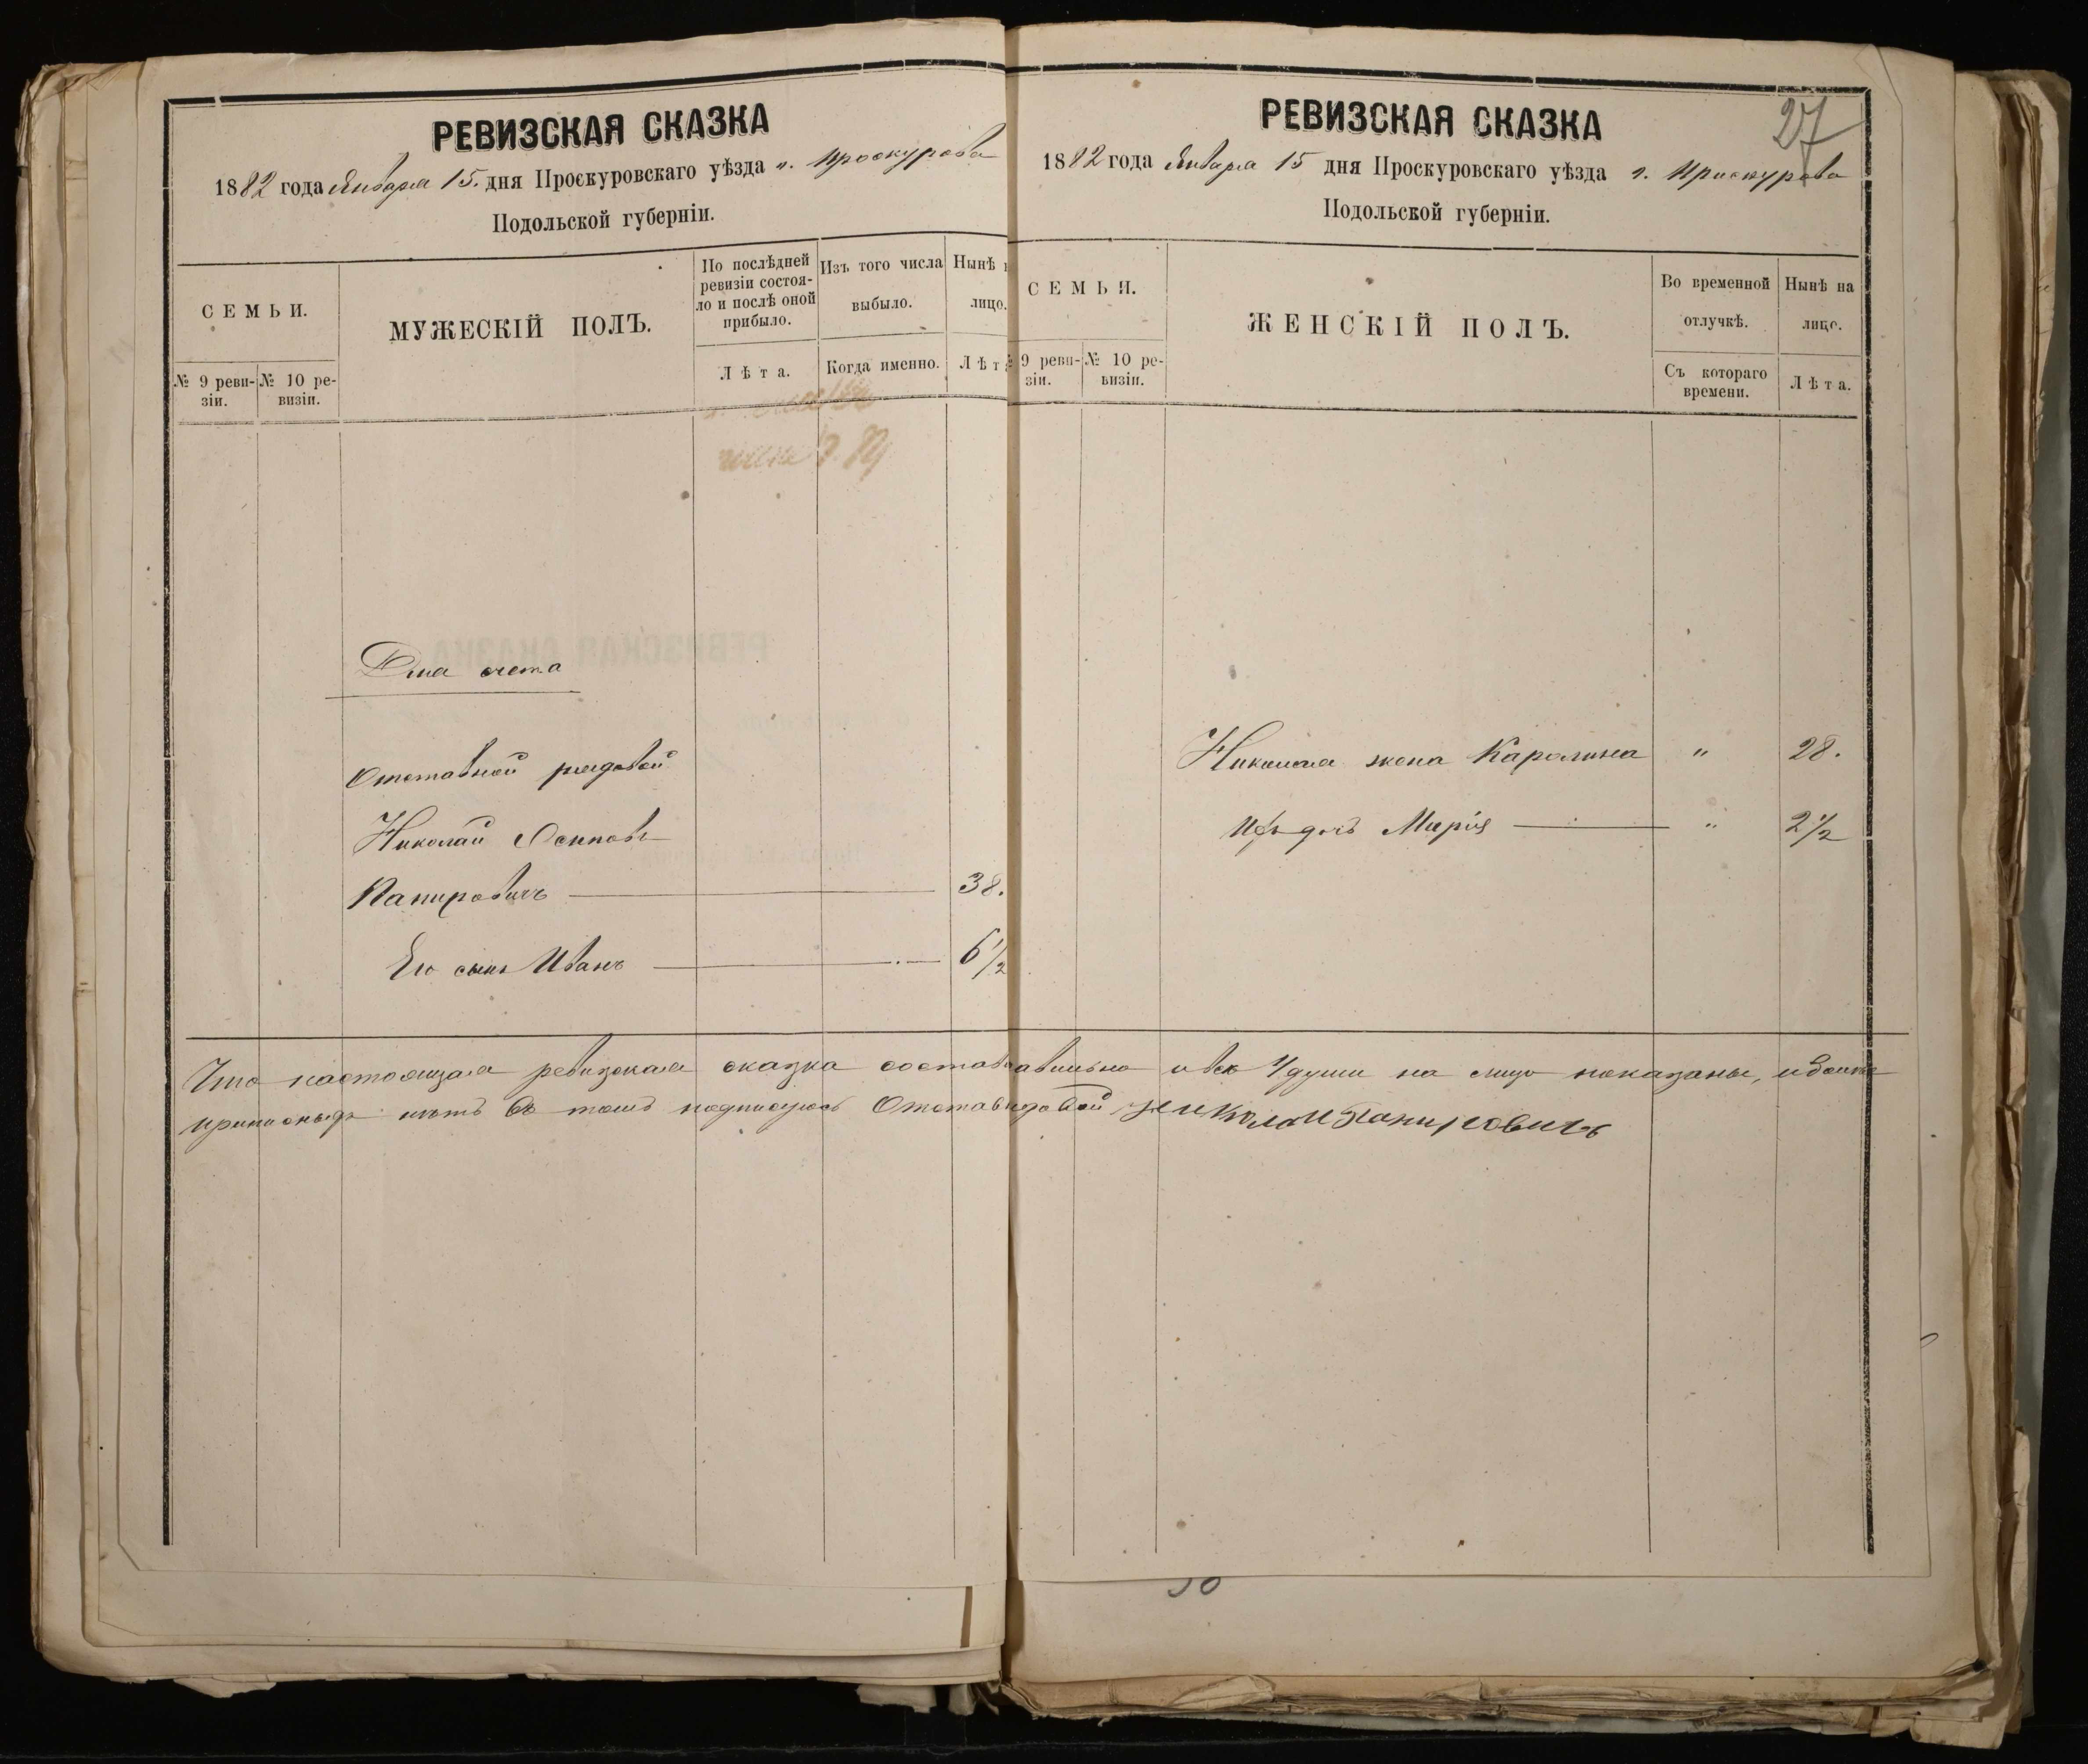 РЕВИЗСКАЯ СКАЗКА
1882 года Января 15. дня Проскуровскаго уѣзда г. Проскурова
Подольской губерніи.
СЕМЬИ.
№ 9 реви-
зіи.
№ 10 ре-
визіи.
МУЖЕСКІЙ ПОЛЪ.
По послѣдней
ревизіи состоя-
ло и послѣ оной
прибыло.
Лѣта.
Изъ того числа
выбыло.
Когда именно.
Нынѣ н
лицо.
Лѣт
Для счета
Отставной рядовой
Николай Осиповъ
Папировичъ 38.
Его сынъ Иванъ 6 1/2
РЕВИЗСКАЯ СКАЗКА
27
1882 года Января 15 дня Проскуровскаго уѣзда г. Проскурова
Подольской губерніи.
СЕМЬИ.
9 реви-
зіи.
№ 10 ре-
визіи.
ЖЕНСКІЙ ПОЛЪ.
Во временной
отлучкѣ.
Съ котораго
времени.
Нынѣ на
лицо.
Лѣта.
Николая жена Каролина " 28.
Ихъ дочь Марія " 2 1/2
Что настоящая ревизская сказка состав авильно и всѣ 4 души на лицо показаны, и
нѣтъ въ томъ подписуюсь Отстав довой Николай Папировичъ